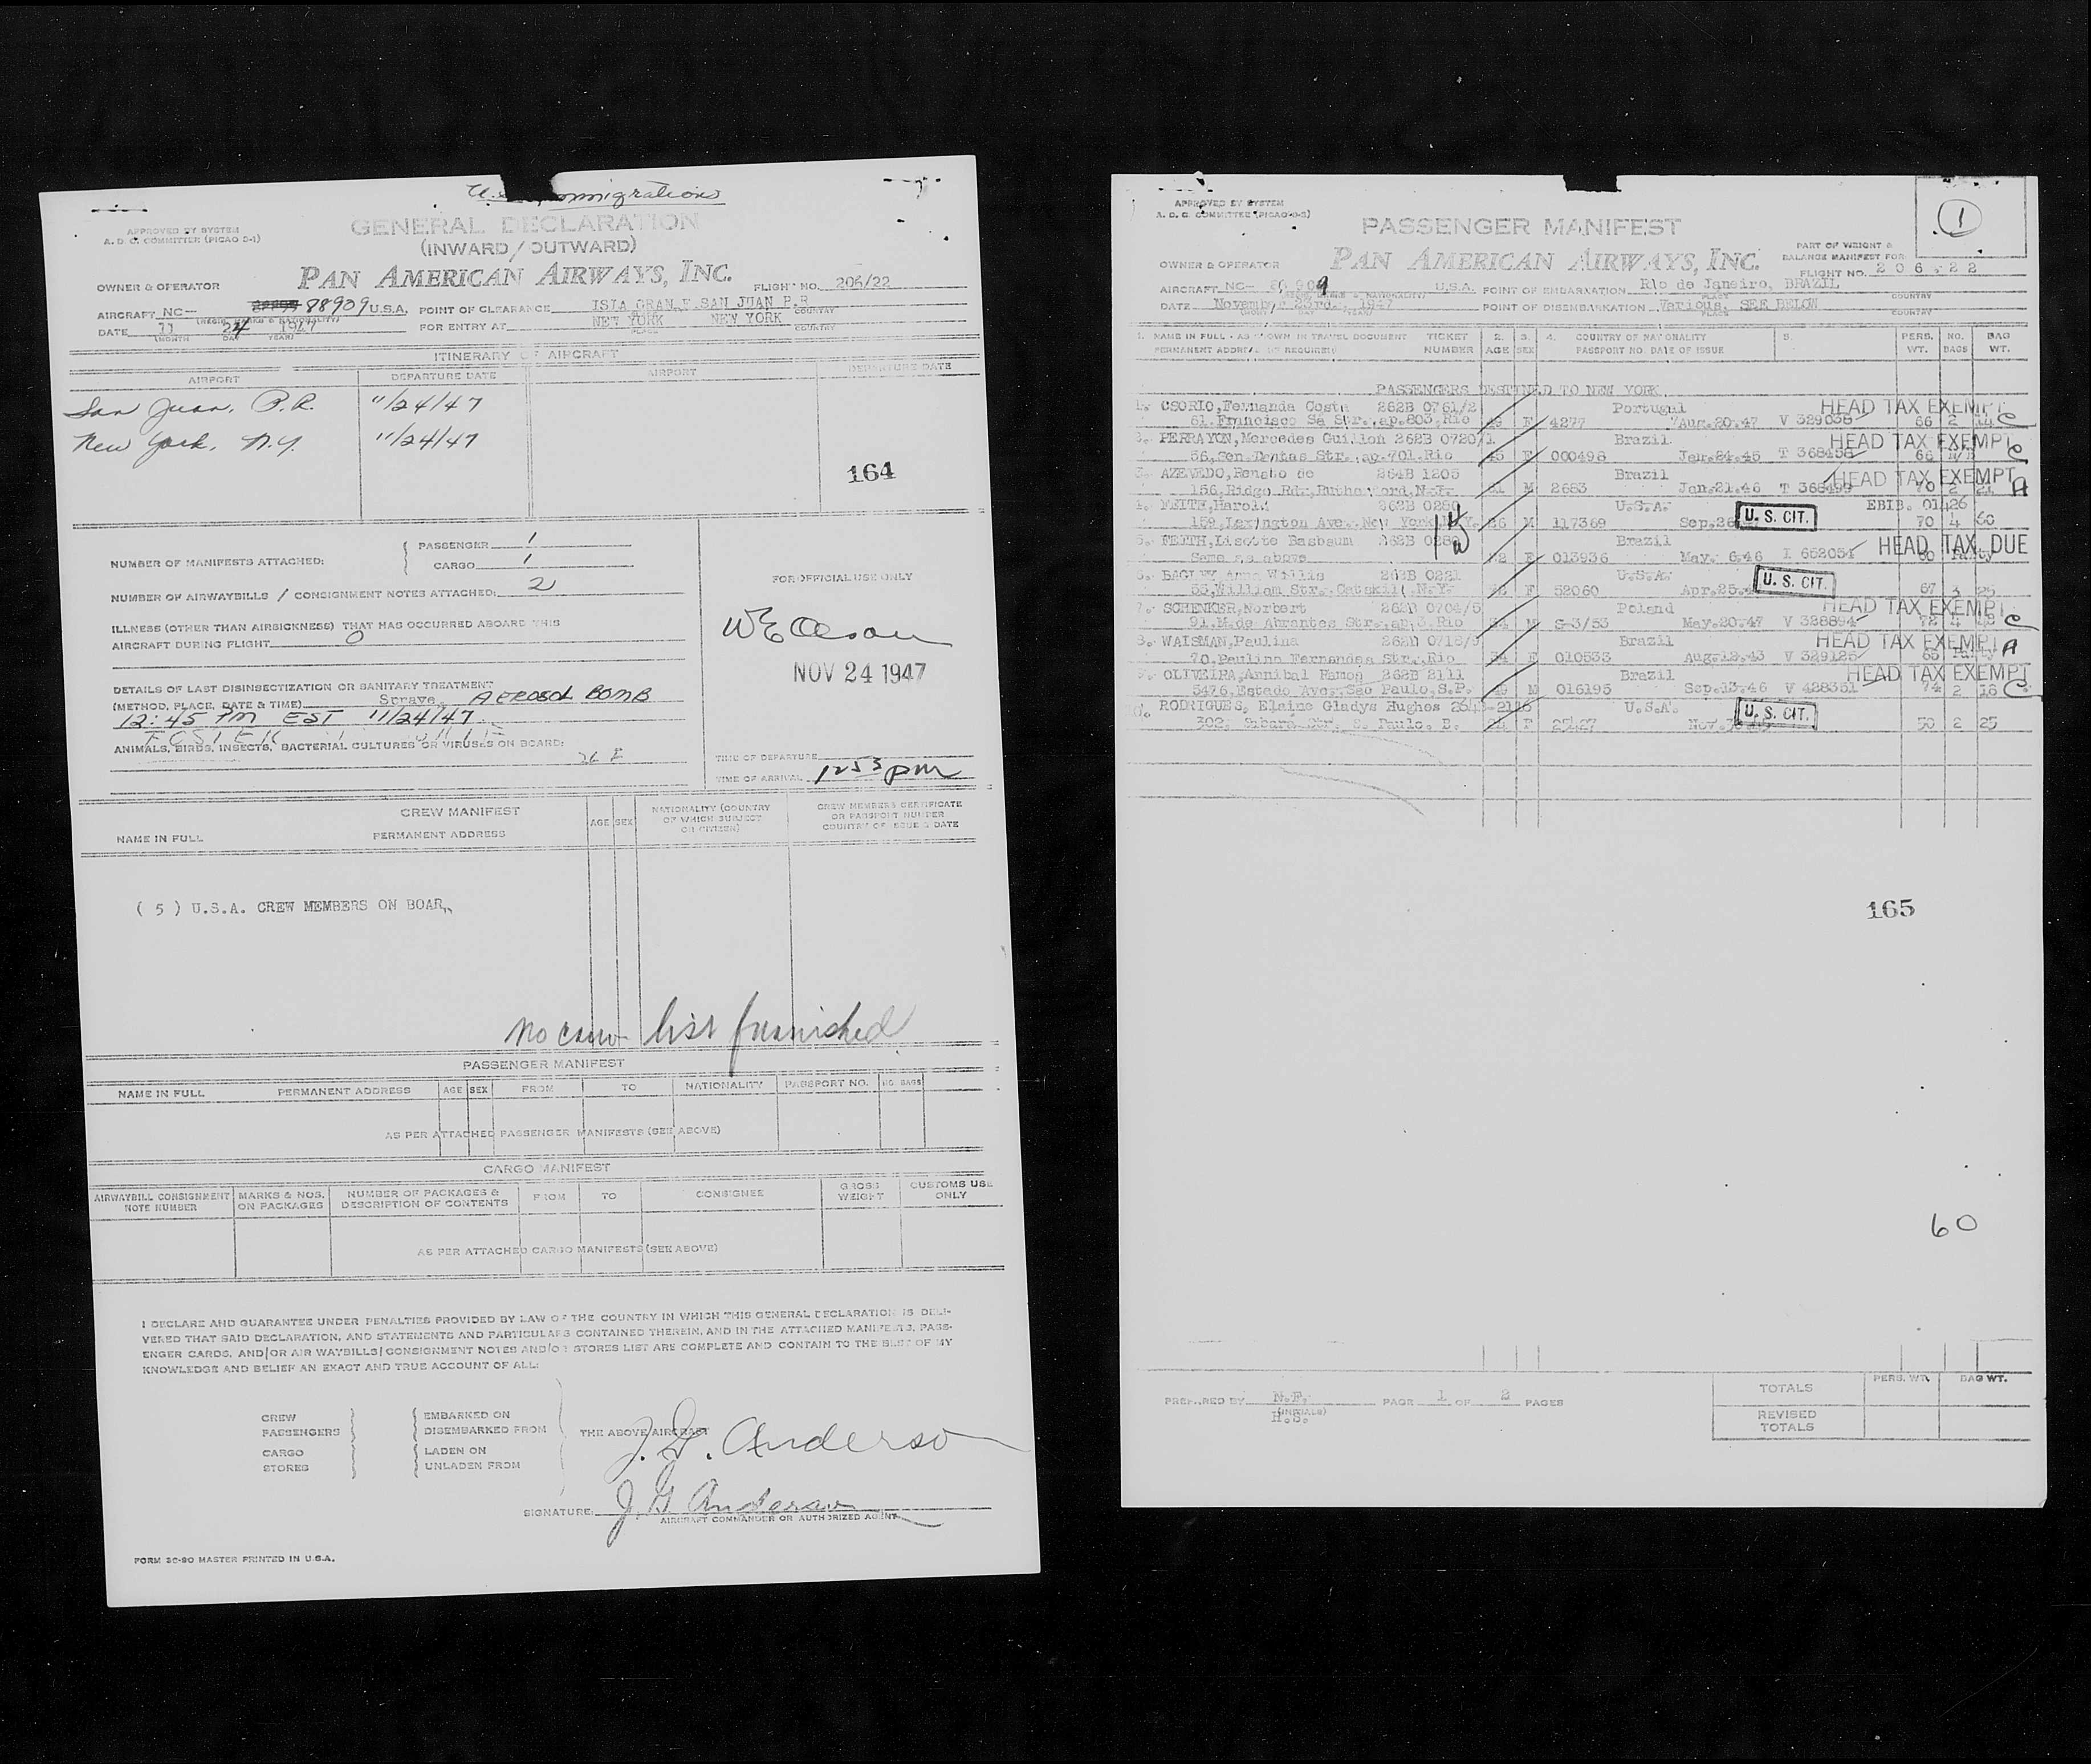 U.S. Immigrations
APPROVED BY SYSTEM
A. D. C. COMMITTEE (PICAO 5-1)
GENERAL DECLARATION
(INWARD / OUTWARD)
PAN AMERICAN AIRWAYS, INC.
OWNER & OPERATOR
FLIGHT NO. 206/22
AIRCRAFT NC— 88909 U.S.A. POINT OF CLEARANCE SAN JUAN P.R.
(REGIN. MARKS & NATIONALITY) PLACE COUNTRY
DATE 11 24 1947 FOR ENTRY AT NEW YORK NEW YORK
(MONTH DAY YEAR) PLACE COUNTRY
ITINERARY OF AIRCRAFT
AIRPORT DEPARTURE DATE AIRPORT DEPARTURE DATE
San Juan, P.R. 11/24/47
New York, N.Y. 11/24/47
164
NUMBER OF MANIFESTS ATTACHED: PASSENGER 1
CARGO 1
NUMBER OF AIRWAYBILLS / CONSIGNMENT NOTES ATTACHED: 2
ILLNESS (OTHER THAN AIRSICKNESS) THAT HAS OCCURRED ABOARD THIS
AIRCRAFT DURING FLIGHT 0
DETAILS OF LAST DISINSECTIZATION OR SANITARY TREATMENT
(METHOD, PLACE, DATE & TIME) Spraye AEROSOL BOMB
12:45 PM EST 11/24/47
ANIMALS, BIRDS, INSECTS, BACTERIAL CULTURES OR VIRUSES ON BOARD:
FOR OFFICIAL USE ONLY
W E Olson
NOV 24 1947
TIME OF DEPARTURE
TIME OF ARRIVAL 1253 pm
CREW MANIFEST
NAME IN FULL PERMANENT ADDRESS AGE SEX NATIONALITY (COUNTRY OF WHICH SUBJECT OR CITIZEN) CREW MEMBERS CERTIFICATE OR PASSPORT NUMBER COUNTRY OF ISSUE & DATE
( 5 ) U.S.A. CREW MEMBERS ON BOARD
no crew list furnished
PASSENGER MANIFEST
NAME IN FULL PERMANENT ADDRESS AGE SEX FROM TO NATIONALITY PASSPORT NO. NO. BAGS
AS PER ATTACHED PASSENGER MANIFESTS (SEE ABOVE)
CARGO MANIFEST
AIRWAYBILL CONSIGNMENT NOTE NUMBER MARKS & NOS. ON PACKAGES NUMBER OF PACKAGES & DESCRIPTION OF CONTENTS FROM TO CONSIGNEE GROSS WEIGHT CUSTOMS USE ONLY
AS PER ATTACHED CARGO MANIFESTS (SEE ABOVE)
I DECLARE AND GUARANTEE UNDER PENALTIES PROVIDED BY LAW OF THE COUNTRY IN WHICH THIS GENERAL DECLARATION IS DELI-
VERED THAT SAID DECLARATION, AND STATEMENTS AND PARTICULARS CONTAINED THEREIN, AND IN THE ATTACHED MANIFESTS, PASS-
ENGER CARDS, AND/OR AIR WAYBILLS/CONSIGNMENT NOTES AND/OR STORES LIST ARE COMPLETE AND CONTAIN TO THE BEST OF MY
KNOWLEDGE AND BELIEF AN EXACT AND TRUE ACCOUNT OF ALL:
CREW EMBARKED ON
PASSENGERS DISEMBARKED FROM THE ABOVE AIRCRAFT
CARGO LADEN ON
STORES UNLADEN FROM
J. G. Anderson
SIGNATURE: J G Anderson
AIRCRAFT COMMANDER OR AUTHORIZED AGENT
FORM 30-90 MASTER PRINTED IN U.S.A.
APPROVED BY SYSTEM
A. D. C. COMMITTEE (PICAO 5-2)
1
PASSENGER MANIFEST
PART OF WEIGHT &
BALANCE MANIFEST FOR
OWNER & OPERATOR PAN AMERICAN AIRWAYS, INC. FLIGHT NO. 206-22
AIRCRAFT NC— 88909 U.S.A. POINT OF EMBARKATION Rio de Janeiro, BRAZIL
PLACE COUNTRY
DATE November 23rd., 1947 POINT OF DISEMBARKATION Various, SEE BELOW
PLACE COUNTRY
1. NAME IN FULL - AS SHOWN IN TRAVEL DOCUMENT TICKET 2. 3. 4. COUNTRY OF NATIONALITY 5. PERS. NO. BAG
PERMANENT ADDRESS IF REQUIRED NUMBER AGE SEX PASSPORT NO. DATE OF ISSUE WT. BAGS WT.
PASSENGERS DESTINED TO NEW YORK
1. OSORIO, Fernanda Costa 262B 0761/2 Portugal HEAD TAX EXEMPT
61. Francisco Sá Str., ap.803, Rio F 4277 Aug.20.47 V 329036 66 2 C
2. PERRAYON, Mercedes Guillon 262B 0720/1 Brazil HEAD TAX EXEMPT
56, Gen. Dantas Str., ap.701. Rio 45 F 000498 Jan.24.45 T 368458 C
3. AZEVEDO, Renato de 264B 1205 Brazil HEAD TAX EXEMPT
156, Ridge Rd., Rutherford, N.J. M 2653 Jan.21.46 T 70 2 A
4. FEITH, Harold 262B 0280 U.S.A. EBIB. 01426
159, Lexington Ave. New York N.Y. 36 M 117369 Sep.26 U. S. CIT. 70 4 60
5. FEITH, Lisette Basbaum 262B 0280 Brazil HEAD TAX DUE
Same as above F 013936 May. 6.46 I 652054 60
6. BAGLEY, Anna Willis 262B 0221 U.S.A.
55, William Str., Catskill, N.Y. F 52060 Apr.25. U. S. CIT. 67 3 25
7. SCHENKER, Norbert 262B 0704/5 Poland HEAD TAX EXEMPT
91. M.de Abrantes Str., ap.3. Rio 34 M S-3/53 May.20.47 V 328894 72 4 C
8. WAISMAN, Paulina 262B 0718/9 Brazil HEAD TAX EXEMPT
70, Paulino Fernandes Str., Rio 34 F 010533 Aug.12.43 V 329125 A
9. OLIVEIRA, Annibal Ramon 262B 2111 Brazil HEAD TAX EXEMPT
5476, Estado Ave., São Paulo, S.P. M 016195 Sep.13.46 V 428351 74 2 16 C
10. RODRIGUES, Elaine Gladys Hughes U.S.A.
302, Str. S. Paulo. B. F 25427 Nov. U. S. CIT. 50 2 25
165
60
PREPARED BY N.F. PAGE 1 OF 2 PAGES
(INITIALS)
H.S.
PERS. WT. BAG WT.
TOTALS
REVISED
TOTALS